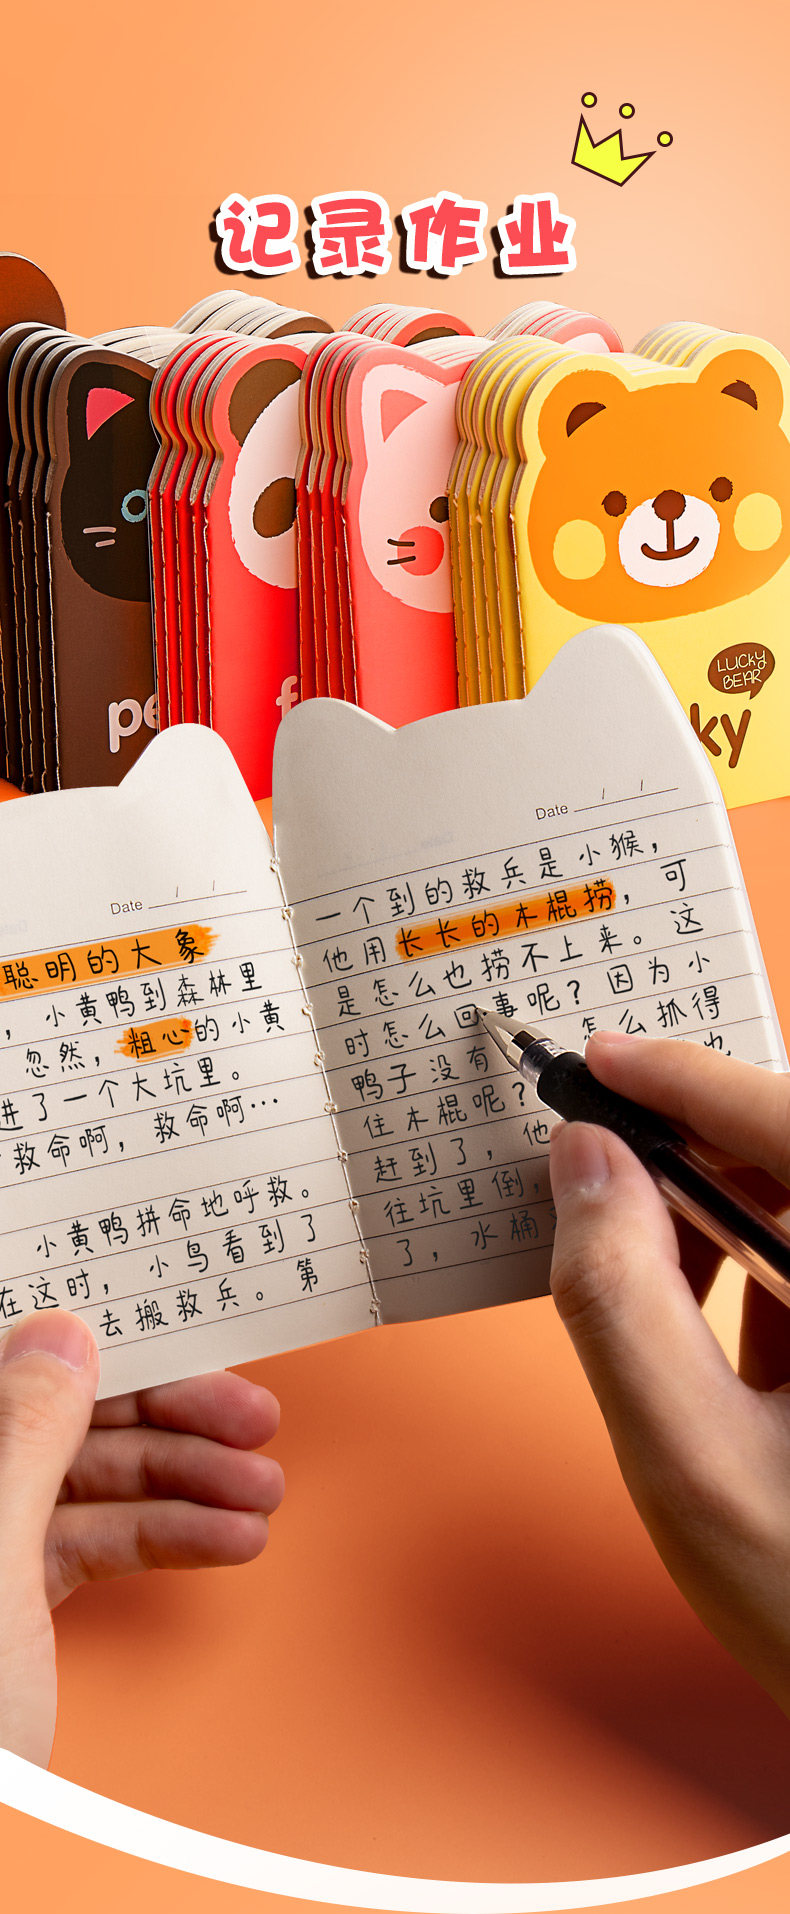 记录作业
LUCKY
BEAR
pe
f
ky
Date
聪明的大象
，小黄鸭到森林里
忽然，粗心的小黄
进了一个大坑里。
救命啊，救命啊…
小黄鸭拼命地呼救。
在这时，小鸟看到了
去搬救兵。第
Date
一个到的救兵是小猴，
他用长长的木棍捞，可
是怎么也捞不上来。这
时怎么回事呢？因为小
鸭子没有 怎么抓得
住木棍呢？ 也
赶到了，他
往坑里倒，
了，水桶